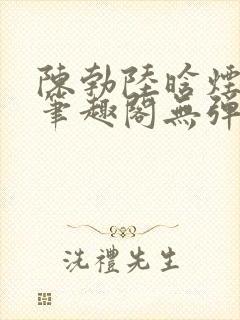 陳勃陸晗煙
筆趣閣無彈
洗禮先生